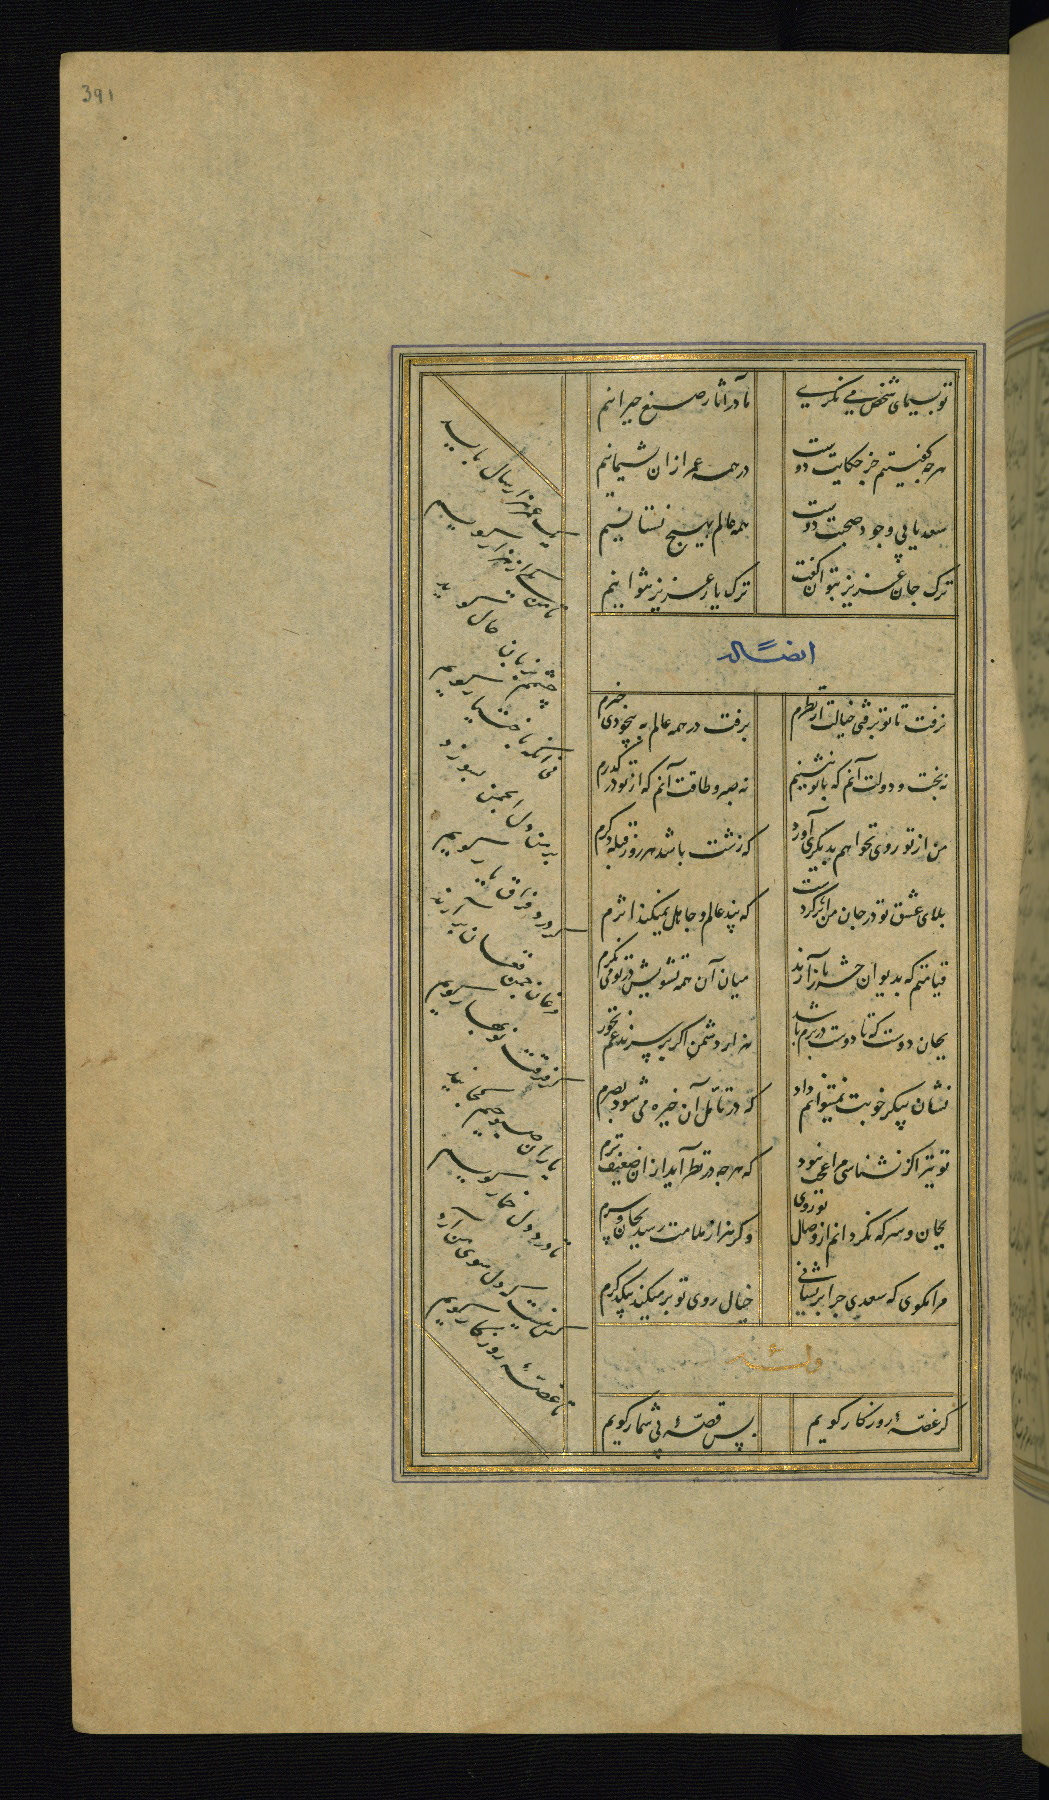 391
تو بسیمای شخص می نگری
ما در آثار صنع حیرانیم
هرچه گفتیم جز حکایت دوست
در همه عمر از ان پشیمانیم
سعدیا بی وجود صحبت دوست
همه عالم بهیچ نستانیم
ترک جان عزیز بتوان گفت
ترک یار عزیز نتوانیم
ایضاً له
نرفت تا تو برفتی خیالت از نظرم
برفت در همه عالم به بیخودی خبرم
نه بخت و دولت آنم که با تو بنشینم
نه صبر و طاقت آنم که از تو درگذرم
من از تو روی نخواهم بدیگری آورد
که زشت باشد هر روز قبله دگرم
بلای عشق تو در جان من اثر کردست
که پند عالم و جاهل نمیکند اثرم
قیامتم که بدیوان حشر باز آرند
میان آن همه تشویش در تو می نگرم
بجان دوست که تا دوست در برم باشد
هزار دشمن اگر بر سرند غم نخورم
نشان پیکر خوبت نمیتوانم داد
که در تأمل آن خیره می شود بصرم
تو نیز اگر نشناسی مرا عجب نبود
که هرچه در نظر آید از ان ضعیف ترم
بجان و سر که نگردانم از وصال تو روی
وگر هزار ملامت رسد بجان و سرم
مرا مگوی که سعدی چرا پریشانی
خیال روی تو بر میکند بیکدگرم
وله
گر غصه روزگار گویم
بس قصه بی شمار گویم
یک عمر هزار سال باید
تا من یکی از هزار گویم
چشمم بزبان حال گوید
نی آنکه باختیار گویم
بر من دل انجمن بسوزد
گر درد فراق یار گویم
مرغان چمن فغان برآرند
گر فرقت نوبهار گویم
یاران صبوحیم کجایند
تا درد دل خمار گویم
کس نیست که دل سوی من آرد
تا غصه روزگار گویم